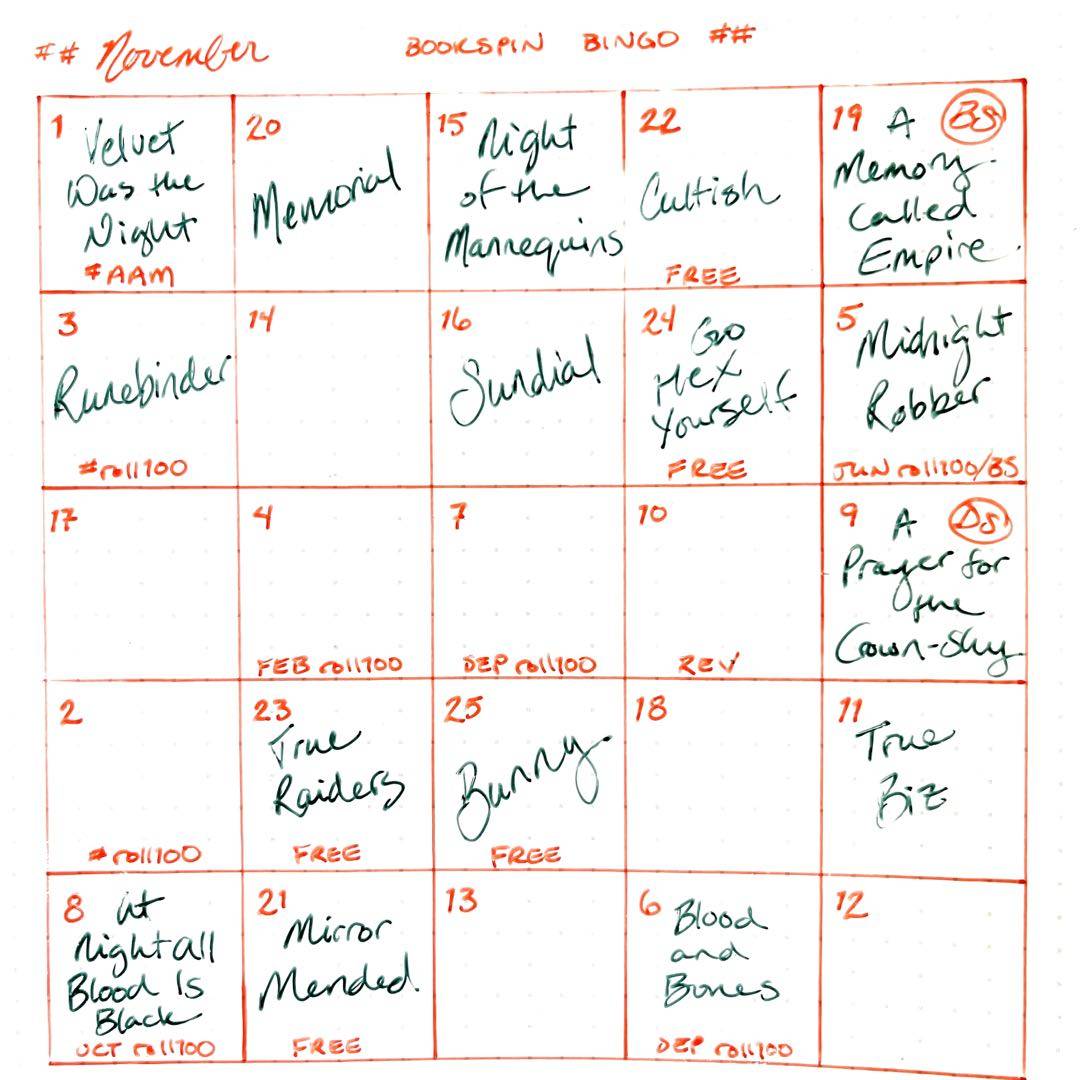 ## November BOOKSPIN BINGO ##
1 Velvet
Was the
Night
#AAM
20
Memorial
15 Night
of the
Mannequins
22
Cultish
FREE
19 A BS
Memory
Called
Empire
3
Runebinder
#roll100
14
16
Sundial
24 Go
Hex
Yourself
FREE
5 Midnight
Robber
JUN roll100/BS
17
4
FEB roll100
7
DEP roll100
10
REV
9 A DS
Prayer for
the
Crown-Shy
2
#roll100
23
True
Raiders
FREE
25
Bunny
FREE
18
11
True
Biz
8 At
Night all
Blood Is
Black
OCT roll100
21
Mirror
Mended
FREE
13
6 Blood
and
Bones
DEP roll100
12